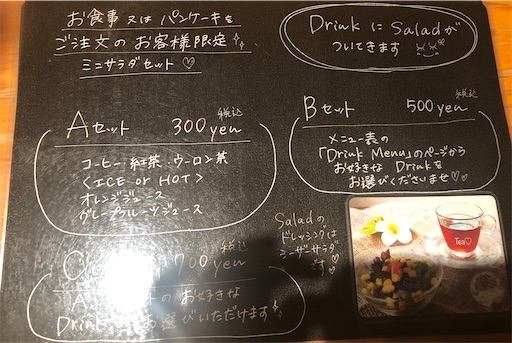 お食事 又は パンケーキを
ご注文の お客様限定
ミニサラダセット♡
Drink に Saladが
ついてきます
税込
Aセット 300yen
コーヒー・紅茶・ウーロン茶
<ICE or HOT>
オレンジジュース
グレープフルーツジュース
税込
Bセット 500yen
メニュー表の
「Drink Menu」のページから
お好きな Drinkを
お選びくださいませ♡
税込
C 700yen
A のお好きな
Drink お選びいただけます
Saladの
ドレッシングは
シーザーサラダ
です
Tea♡